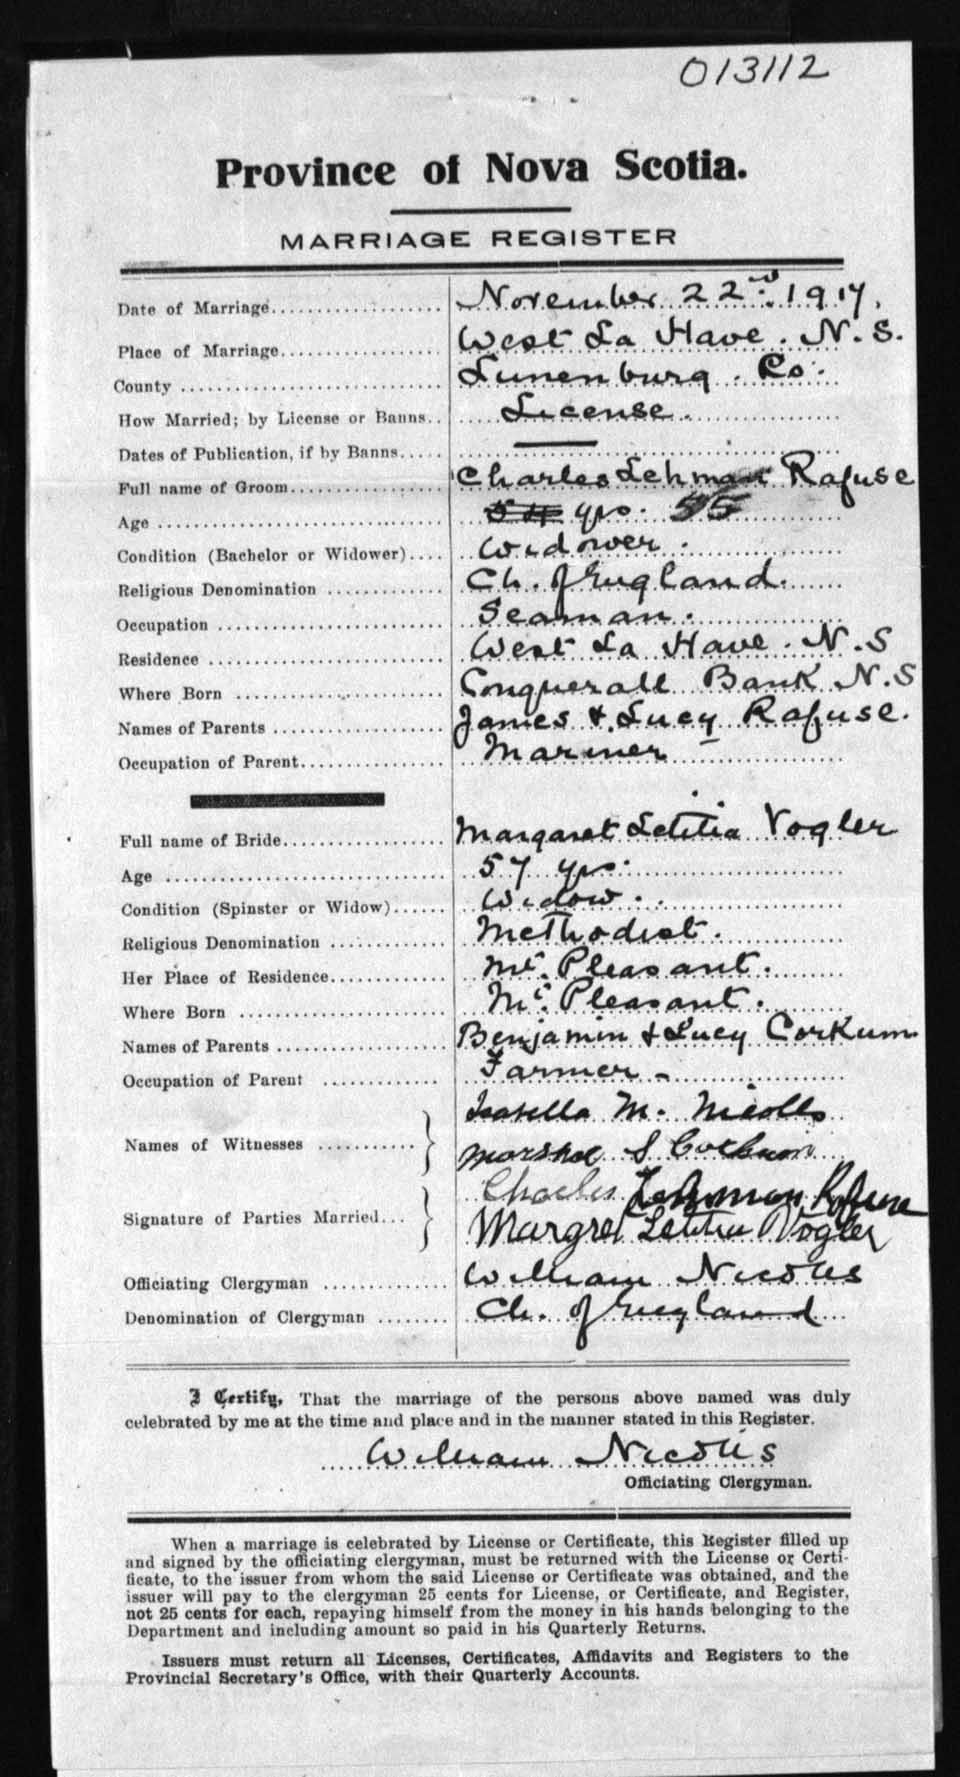 013112
Province of Nova Scotia.
MARRIAGE REGISTER
Date of Marriage November 22nd 1917.
Place of Marriage West La Have. N.S.
County Lunenburg. Co.
How Married; by License or Banns License.
Dates of Publication, if by Banns —
Full name of Groom Charles Lehman Rafuse
Age 54 yrs. 55
Condition (Bachelor or Widower) Widower.
Religious Denomination Ch. of England.
Occupation Seaman.
Residence West La Have. N.S
Where Born Conquerall Bank N.S
Names of Parents James & Lucy Rafuse.
Occupation of Parent Mariner
Full name of Bride Margaret Letitia Vogler
Age 57 yrs.
Condition (Spinster or Widow) Widow.
Religious Denomination Methodist.
Her Place of Residence Mt. Pleasant.
Where Born Mt. Pleasant.
Names of Parents Benjamin & Lucy Corkum
Occupation of Parent Farmer
Names of Witnesses Isabella M. Nicolls
Marshal S
Signature of Parties Married Charles Lehman Rafuse
Margret Letitia Vogler
Officiating Clergyman William Nicolls
Denomination of Clergyman Ch. of England
I Certify, That the marriage of the persons above named was duly
celebrated by me at the time and place and in the manner stated in this Register.
William Nicolls
Officiating Clergyman.
When a marriage is celebrated by License or Certificate, this Register filled up
and signed by the officiating clergyman, must be returned with the License or Certi-
ficate, to the issuer from whom the said License or Certificate was obtained, and the
issuer will pay to the clergyman 25 cents for License, or Certificate, and Register,
not 25 cents for each, repaying himself from the money in his hands belonging to the
Department and including amount so paid in his Quarterly Returns.
Issuers must return all Licenses, Certificates, Affidavits and Registers to the
Provincial Secretary's Office, with their Quarterly Accounts.